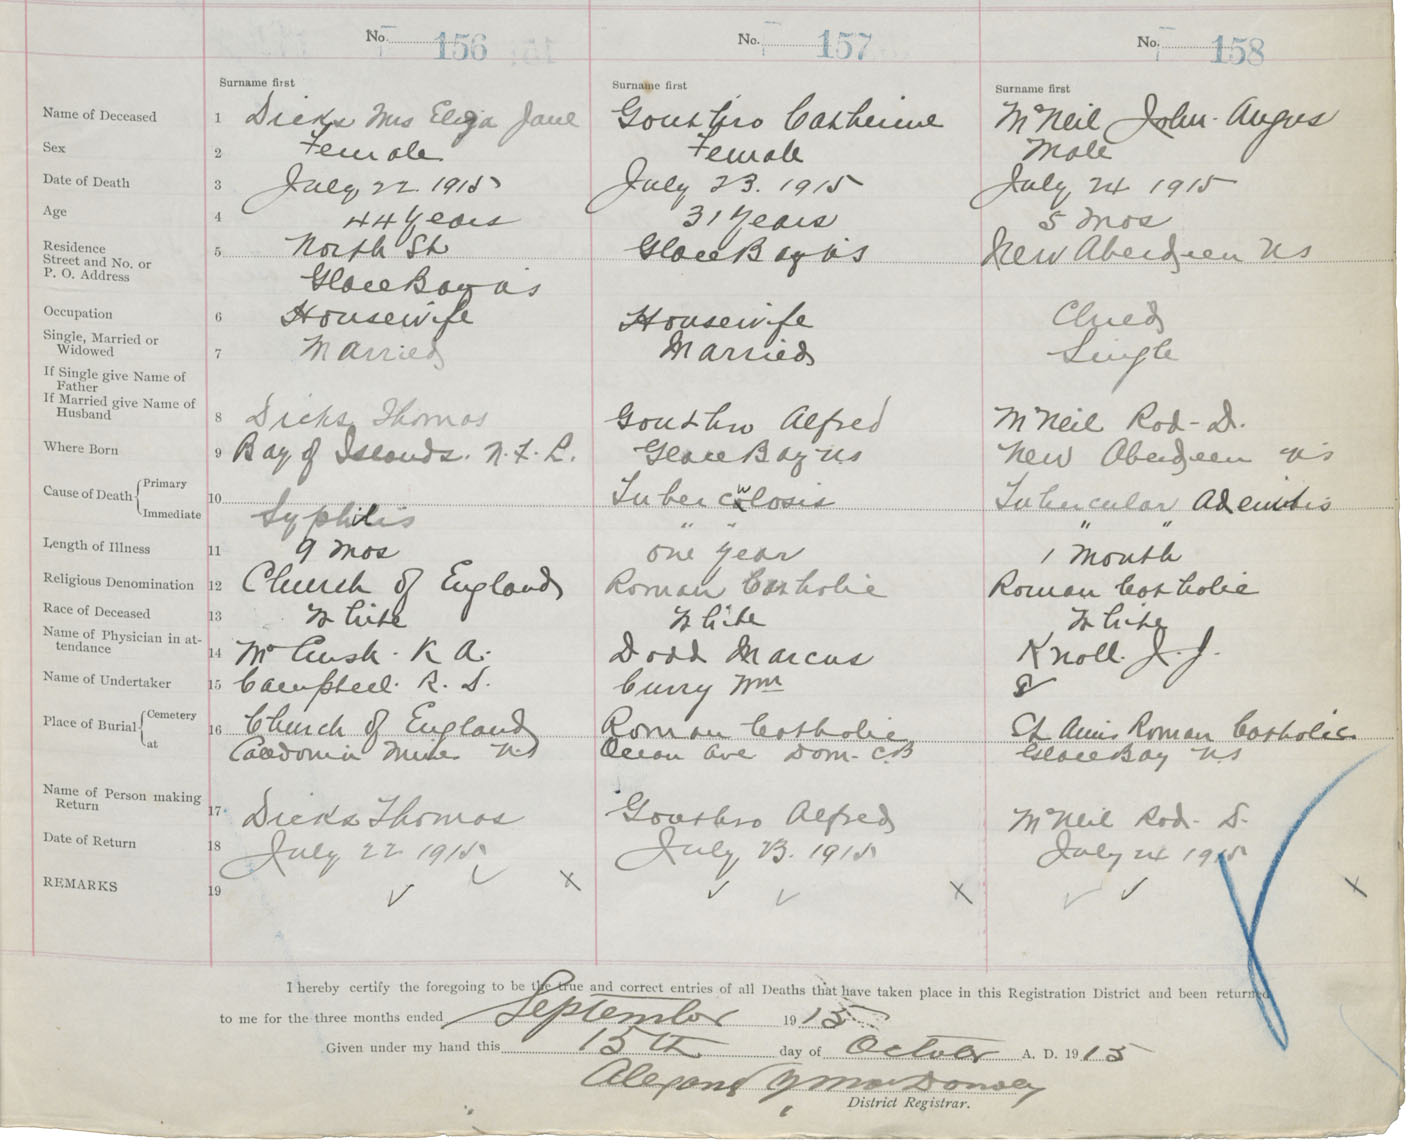 No. 156 No. 157 No. 158
Surname first Surname first Surname first
Name of Deceased 1 Dicks Mrs Eliza Jane Gouthro Catherine McNeil John Angus
Sex 2 Female Female Male
Date of Death 3 July 22 1915 July 23. 1915 July 24 1915
Age 4 44 Years 31 Years 5 mos
Residence
Street and No. or 5 North St Glace Bay NS New Aberdeen NS
P. O. Address Glace Bay NS
Occupation 6 Housewife Housewife Child
Single, Married or
Widowed 7 Married Married Single
If Single give Name of
Father
If Married give Name of
Husband 8 Dicks Thomas Gouthro Alfred McNeil Rod - D.
Where Born 9 Bay of Islands. N.F.L. Glace Bay NS New Aberdeen NS
Cause of Death { Primary 10 Tuberculosis Tubercular Adenitis
Immediate Syphilis " " " "
Length of Illness 11 9 mos one year 1 month
Religious Denomination 12 Church of England Roman Catholic Roman Catholic
Race of Deceased 13 White White White
Name of Physician in at-
tendance 14 K A. Dodd Marcus Knoll J. J.
Name of Undertaker 15 Campbell. R. S. Curry Wm
Place of Burial { Cemetery 16 Church of England Roman Catholic St Anns Roman Catholic
at Caledonia Mines NS Ocean Ave Dom. C.B Glace Bay NS
Name of Person making
Return 17 Dicks Thomas Gouthro Alfred McNeil Rod -
Date of Return 18 July 22 1915 July 23. 1915 July 24 1915
REMARKS 19
I hereby certify the foregoing to be the true and correct entries of all Deaths that have taken place in this Registration District and been returned
to me for the three months ended September 1915
Given under my hand this 15th day of October A. D. 1915
District Registrar.